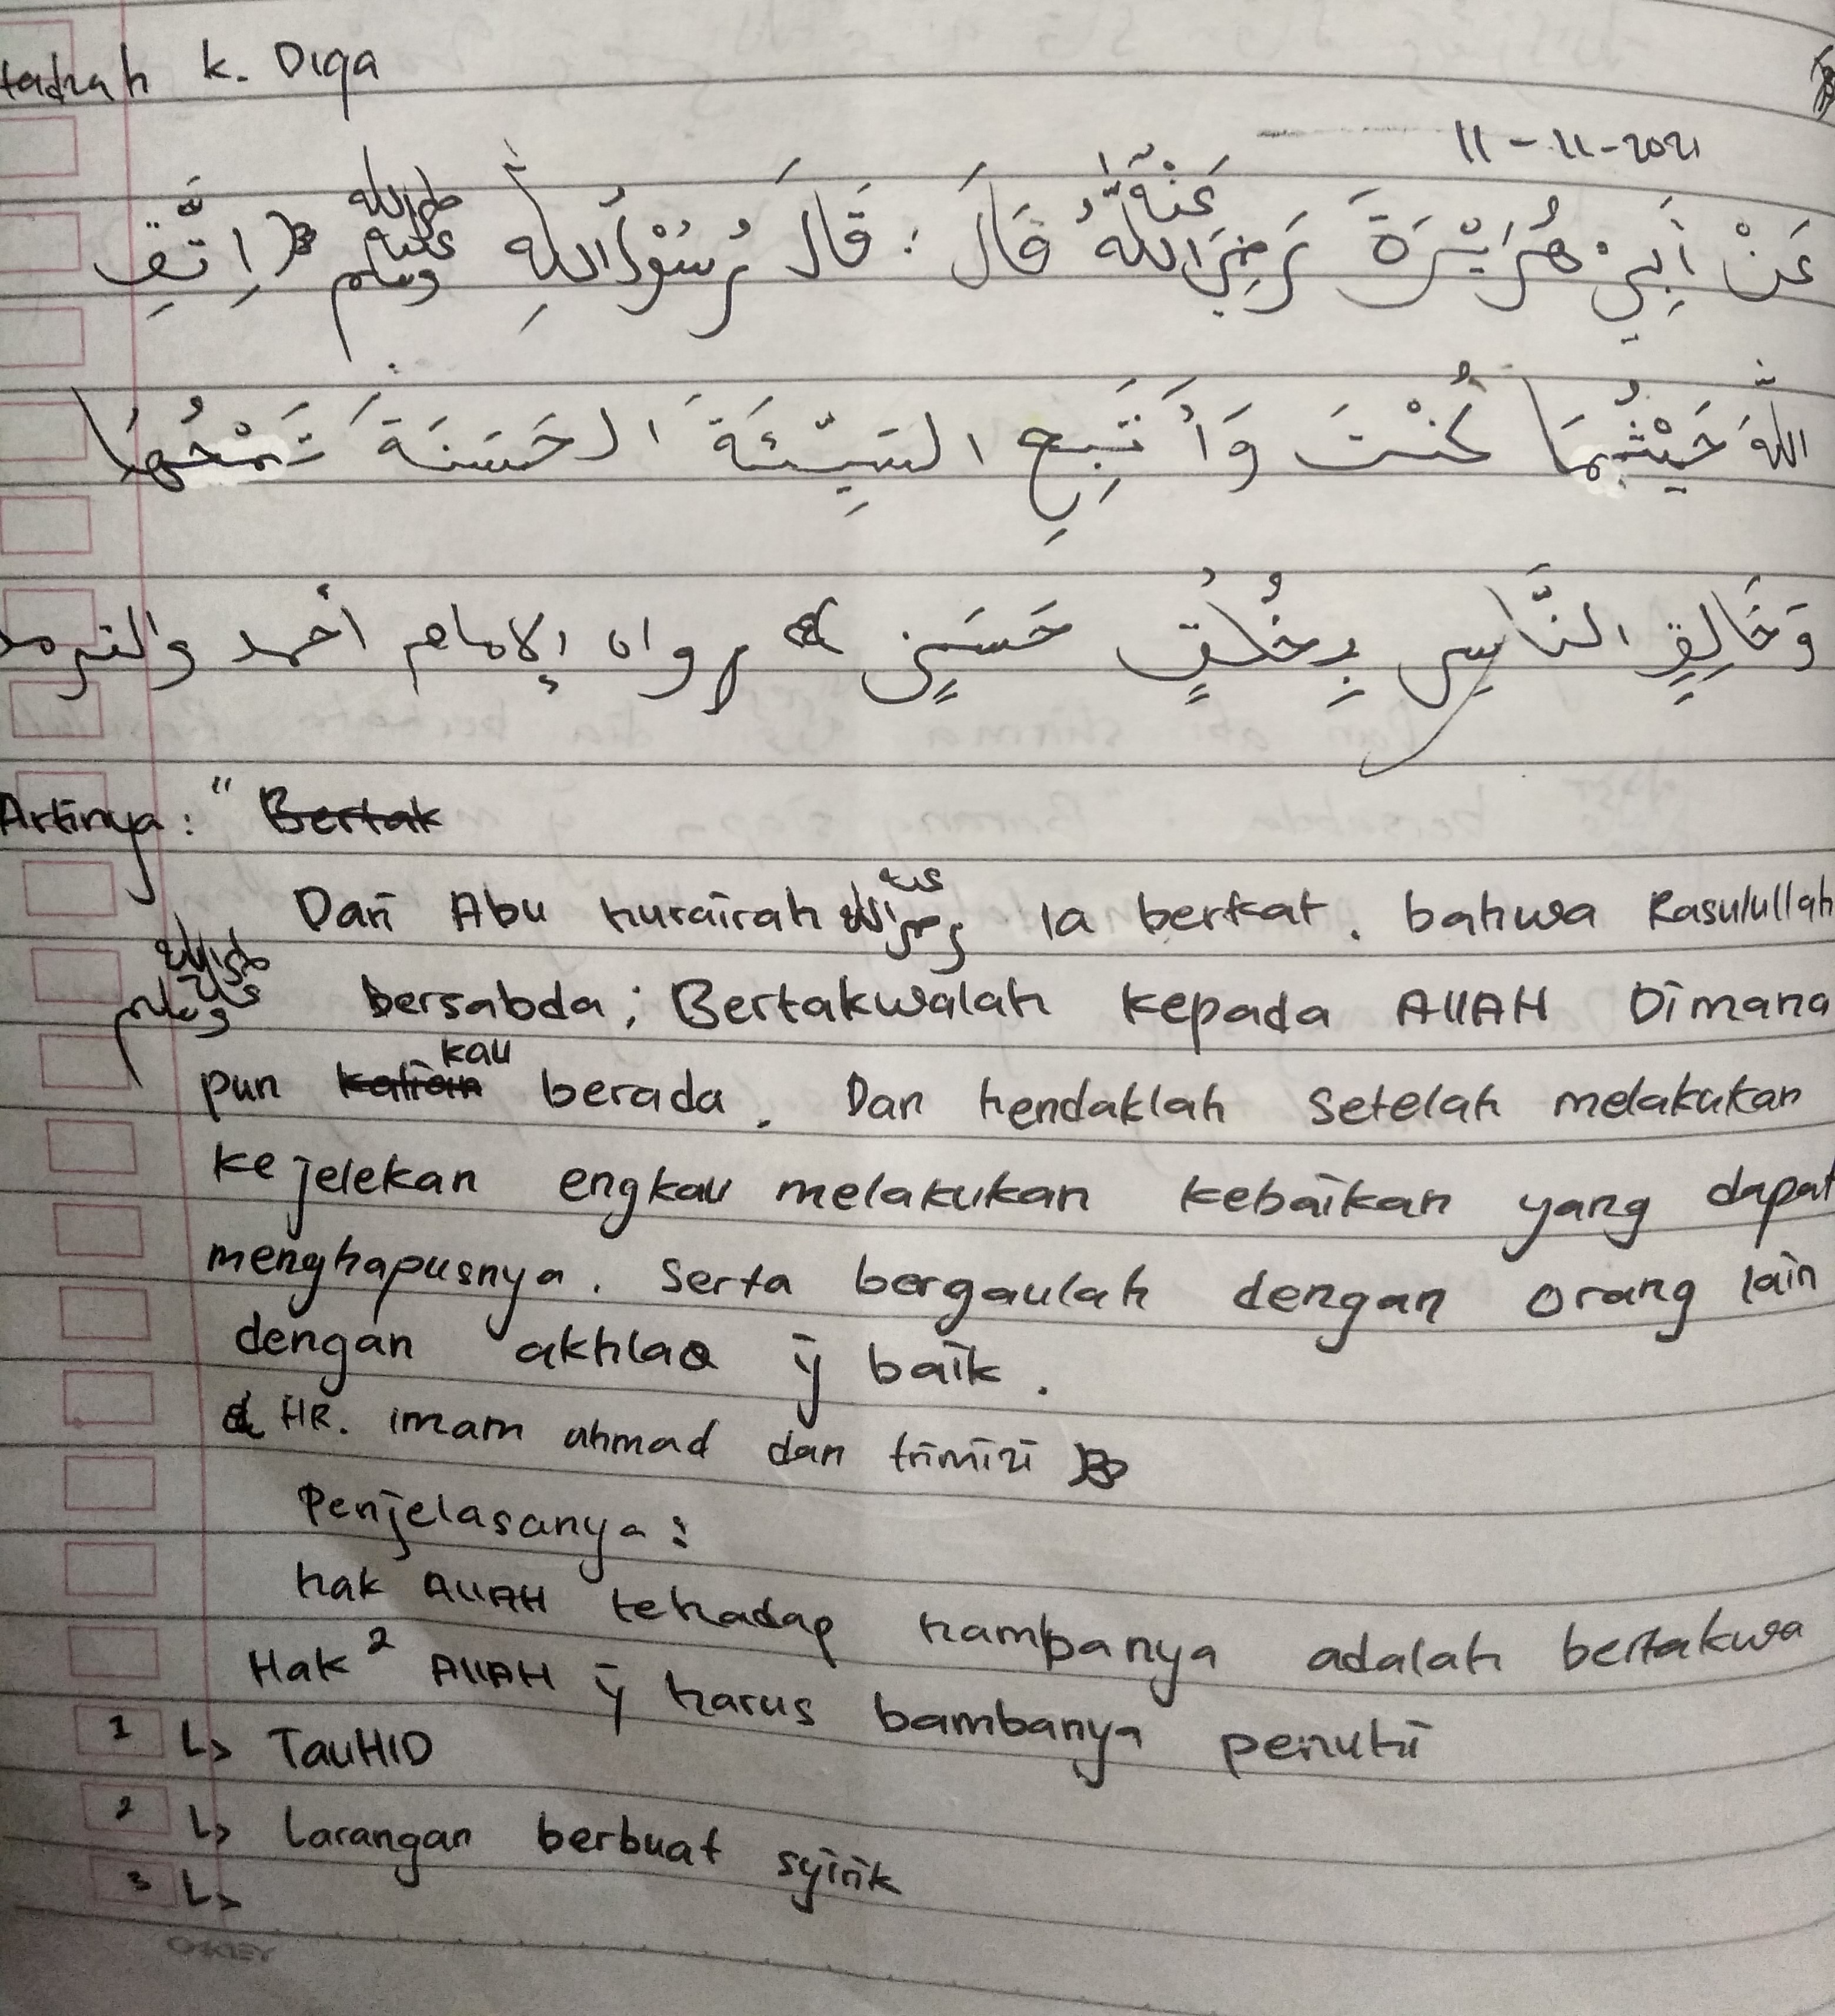 tadzah k. Diqa
11-11-2021
عَنْ أَبِي هُرَيْرَةَ رَضِيَ اللهُ عَنْهُ قَالَ : قَالَ رَسُوْلُ اللهِ صلى الله عليه وسلم اِتَّقِ
اللّٰهَ حَيْثُمَا كُنْتَ وَأَتْبِعِ السَّيِّئَةَ الحَسَنَةَ تَمْحُهَا
وَخَالِقِ النَّاسِ بِخُلُقٍ حَسَنٍ رواه الإمام أحمد والترمذ
Artinya : "
Dari Abu hurairah رضي الله عنه Ia berkat. bahwa Rasulullah
صلى الله عليه وسلم bersabda ; Bertakwalah kepada AllAH Dimana
pun kau berada. Dan hendaklah setelah melakukan
kejelekan engkau melakukan kebaikan yang dapat
menghapusnya. Serta bergaulah dengan orang lain
dengan akhlaq ȳ baik.
HR. imam ahmad dan trimizi
Penjelasanya :
hak AllAH tehadap hambanya adalah bertakwa
Hak² AllAH ȳ harus bambanya penuhi
1 ↳ TauHID
2 ↳ Larangan berbuat syirik
3 ↳
OKEY